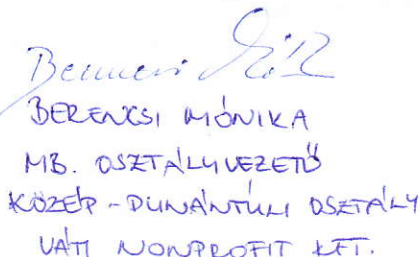 BERENCSI MÓNIKA
MB. OSZTÁLYVEZETŐ
KÖZÉP-DUNÁNTÚLI OSZTÁLY
VÁTI NONPROFIT KFT.